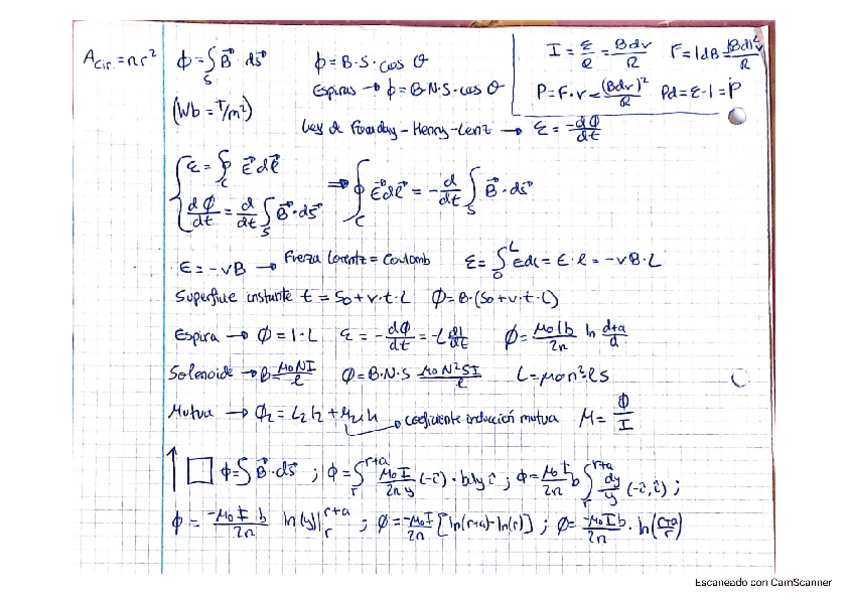 A_cir. = πr²   ϕ = ∫_S B⃗ · ds⃗   ϕ = B·S·cos θ   I = ε/R = Bdv/R   F = IdB = (Bd)²v/R
(Wb = T/m²)   Espiras → ϕ = B·N·S·cos θ   P = F·v = (Bdv)²/R   Pd = ε·I = P
Ley de Faraday-Henry-Lenz → ε = -dϕ/dt
{ ε = ∮_C E⃗ dl⃗
dϕ/dt = d/dt ∫_S B⃗·ds⃗   ⇒ ∮_C E⃗ dl⃗ = - d/dt ∫_S B⃗ · ds⃗
E = -vB → Fuerza Lorentz = Coulomb   ε = ∫_0^L Edl = E·l = -vB·L
Superficie instante t = S0 + v·t·L   ϕ = B·(S0 + v·t·L)
Espira → ϕ = I·L   ε = -dϕ/dt = -L dI/dt   ϕ = μ0Ib/2π ln d+a/d
Solenoide → B = μ0NI/l   ϕ = B·N·S μ0N²SI/l   L = μ0n²lS
Mutua → ϕ2 = L2I2 + M21I1 → coeficiente inducción mutua   M = ϕ/I
↑ □ ϕ = ∫ B⃗·ds⃗ ; ϕ = ∫_r^{r+a} μ0I/2πy (-î)·bdy î ; ϕ = μ0I/2π b ∫_r^{r+a} dy/y (-î,î) ;
ϕ = -μ0I b/2π ln(y)|_r^{r+a} ; ϕ = -μ0I/2π [ln(r+a)-ln(r)] ; ϕ = -μ0Ib/2π · ln(r+a/r)
Escaneado con CamScanner